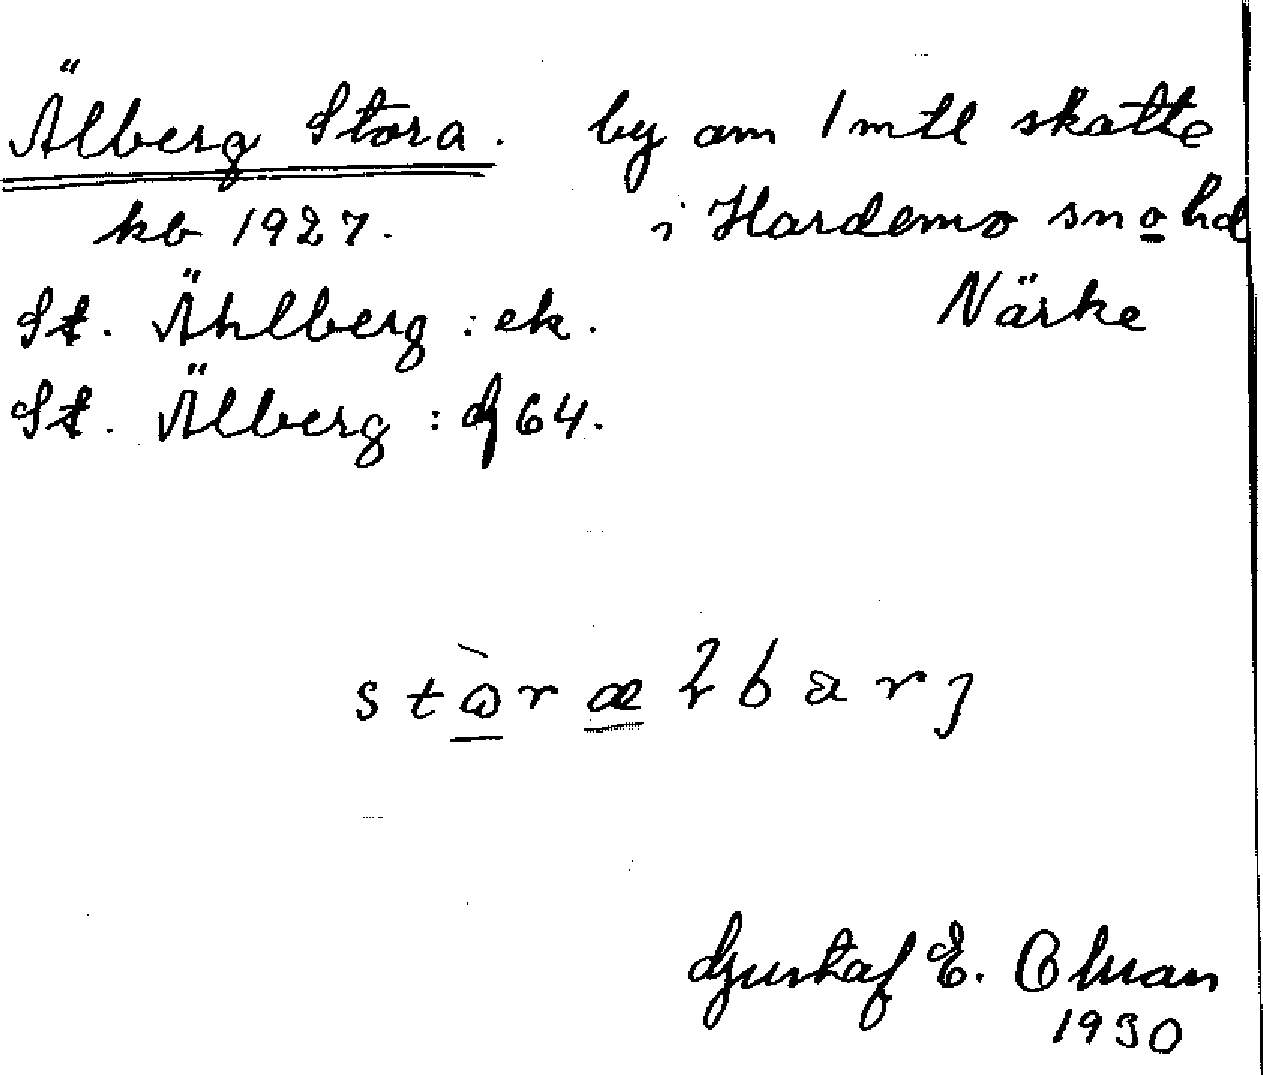 Älberg Stora. by om 1 mtl skatte
kb 1927. i Hardemo sn o hd
St. Ählberg : ek. Närke
St. Älberg : dj 64.
Gustaf E.
1930